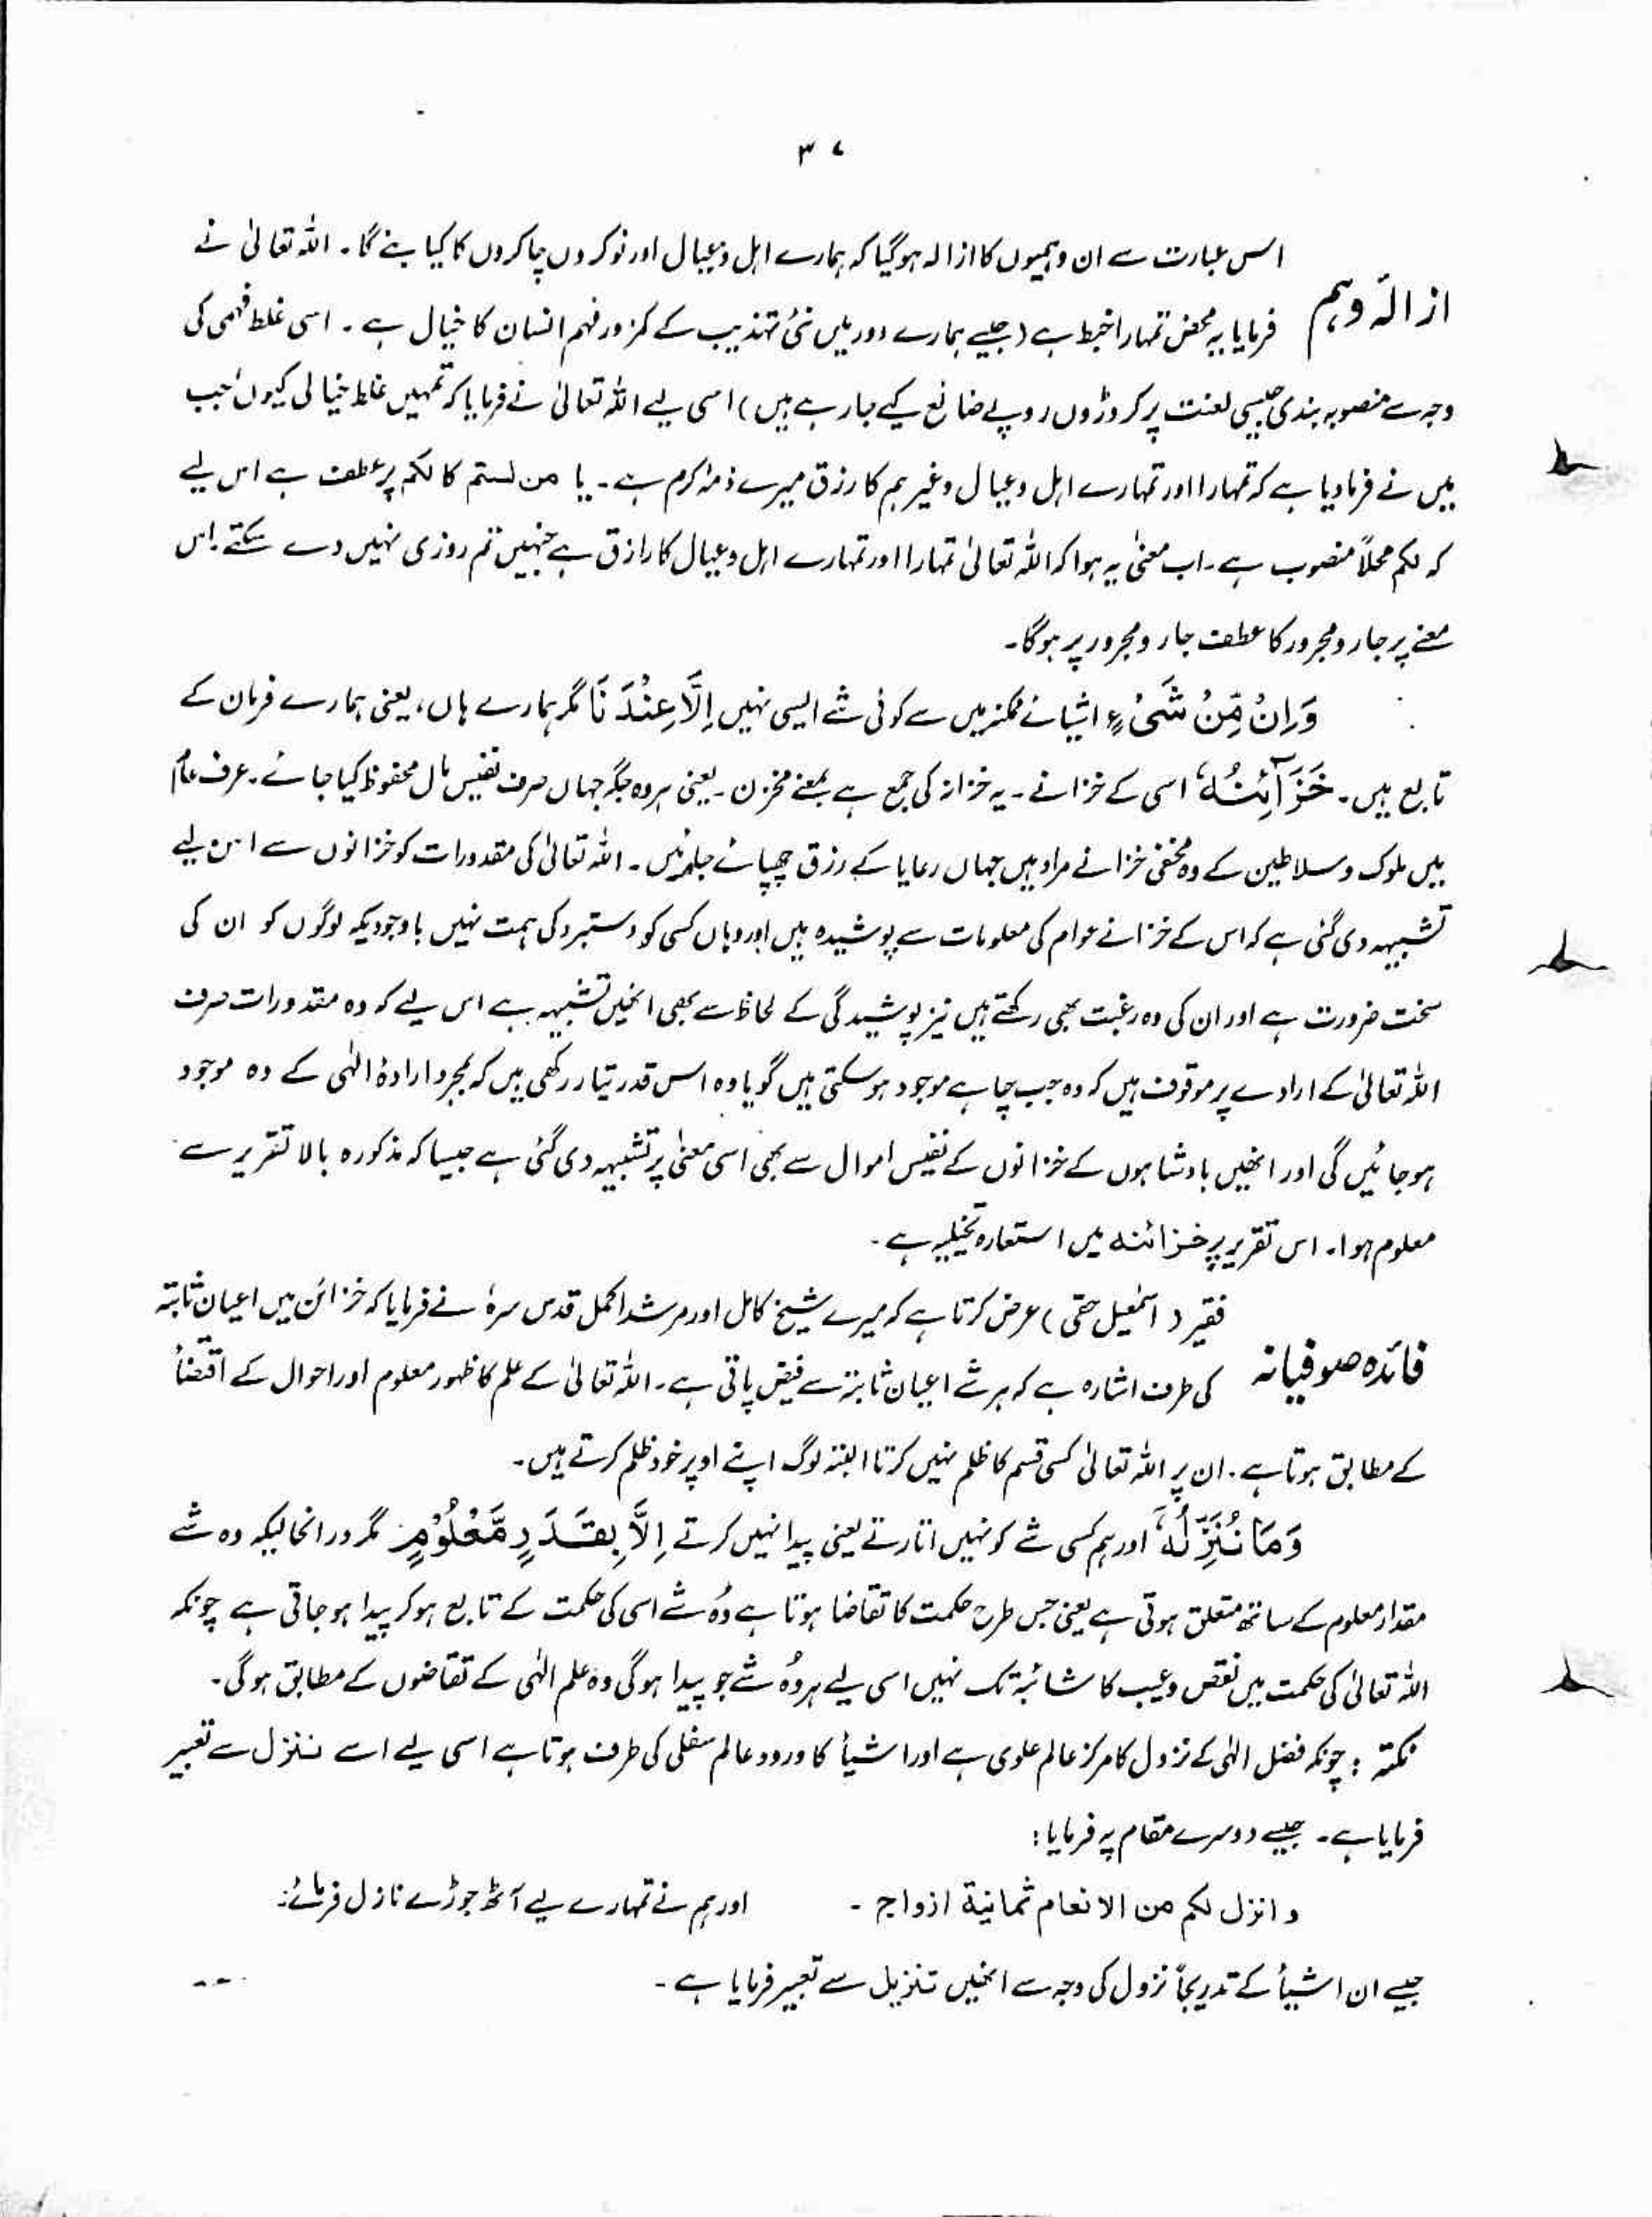 ۳۷
اس عبارت سے ان وہمیوں کا ازالہ ہوگیا کہ ہمارے اہل و عیال اور نوکروں چاکروں کا کیا بنے گا۔ اللہ تعالیٰ نے
ازالۂ وہم فرمایا یہ محض تمہارا خبط ہے (جیسے ہمارے دور میں نئی تہذیب کے کمزور فہم انسان کا خیال ہے۔ اسی غلط فہمی کی
وجہ سے منصوبہ بندی جیسی لعنت پر کروڑوں روپے ضائع کیے جارہے ہیں) اسی لیے اللہ تعالیٰ نے فرمایا کہ تمہیں غلط خیالی کیوں جب
میں نے فرمادیا ہے کہ تمہارا اور تمہارے اہل و عیال وغیرہم کا رزق میرے ذمۂ کرم ہے۔ یا من لستم کا لکم پر عطف ہے اس لیے
کہ لکم محلاً منصوب ہے۔ اب معنیٰ یہ ہوا کہ اللہ تعالیٰ تمہارا اور تمہارے اہل و عیال کا رازق ہے جنہیں تم روزی نہیں دے سکتے۔ اس
معنے پر جار و مجرور کا عطف جار و مجرور پر ہوگا۔
وَاِنْ مِّنْ شَیْءٍ اشیائے ممکنہ میں سے کوئی شے ایسی نہیں اِلَّا عِنْدَنَا مگر ہمارے ہاں، یعنی ہمارے فرمان کے
تابع ہیں۔ خَزَآئِنُہٗ اسی کے خزانے۔ یہ خزانہ کی جمع ہے بمعنے مخزن۔ یعنی ہر وہ جگہ جہاں صرف نفیس مال محفوظ کیا جائے۔ عرف عام
میں ملوک و سلاطین کے وہ مخفی خزانے مراد ہیں جہاں رعایا کے رزق چھپائے جائیں۔ اللہ تعالیٰ کی مقدورات کو خزانوں سے اس لیے
تشبیہہ دی گئی ہے کہ اس کے خزانے عوام کی معلومات سے پوشیدہ ہیں اور وہاں کسی کو دستبرد کی ہمت نہیں باوجودیکہ لوگوں کو ان کی
سخت ضرورت ہے اور ان کی وہ رغبت بھی رکھتے ہیں نیز پوشیدگی کے لحاظ سے بھی انھیں تشبیہہ ہے اس لیے کہ وہ مقدورات صرف
اللہ تعالیٰ کے ارادے پر موقوف ہیں کہ وہ جب چاہے موجود ہوسکتی ہیں گویا وہ اس قدر تیار رکھی ہیں کہ بمجرد ارادۂ الٰہی کے وہ موجود
ہوجائیں گی اور انھیں بادشاہوں کے خزانوں کے نفیس اموال سے بھی اسی معنیٰ پر تشبیہہ دی گئی ہے جیسا کہ مذکورہ بالا تقریر سے
معلوم ہوا۔ اس تقریر پر خزائنہ میں استعارہ تخیلیہ ہے۔
فقیر (اسمٰعیل حقی) عرض کرتا ہے کہ میرے شیخ کامل اور مرشد اکمل قدس سرہٗ نے فرمایا کہ خزائن میں اعیان ثابتہ
فائدہ صوفیانہ کی طرف اشارہ ہے کہ ہر شے اعیان ثابتہ سے فیض پاتی ہے۔ اللہ تعالیٰ کے علم کا ظہور معلوم اور احوال کے اقتضأ
کے مطابق ہوتا ہے۔ ان پر اللہ تعالیٰ کسی قسم کا ظلم نہیں کرتا البتہ لوگ اپنے اوپر خود ظلم کرتے ہیں۔
وَمَا نُنَزِّلُہٗ اور ہم کسی شے کو نہیں اتارتے یعنی پیدا نہیں کرتے اِلَّا بِقَدَرٍ مَّعْلُوْمٍ مگر درانحالیکہ وہ شے
مقدار معلوم کے ساتھ متعلق ہوتی ہے یعنی جس طرح حکمت کا تقاضا ہوتا ہے وہُ شے اسی کی حکمت کے تابع ہوکر پیدا ہوجاتی ہے چونکہ
اللہ تعالیٰ کی حکمت میں نقص و عیب کا شائبہ تک نہیں اسی لیے ہر وہُ شے جو پیدا ہوگی وہ علم الٰہی کے تقاضوں کے مطابق ہوگی۔
نکتہ : چونکہ فضل الٰہی کے نزول کا مرکز عالم علوی ہے اور اشیأ کا ورود عالم سفلی کی طرف ہوتا ہے اسی لیے اسے ننزل سے تعبیر
فرمایا ہے۔ جیسے دوسرے مقام پہ فرمایا:
و انزل لکم من الانعام ثمانیۃ ازواج ۔ اور ہم نے تمہارے لیے آٹھ جوڑے نازل فرمائے۔
جیسے ان اشیأ کے تدریجاً نزول کی وجہ سے انھیں تنزیل سے تعبیر فرمایا ہے۔